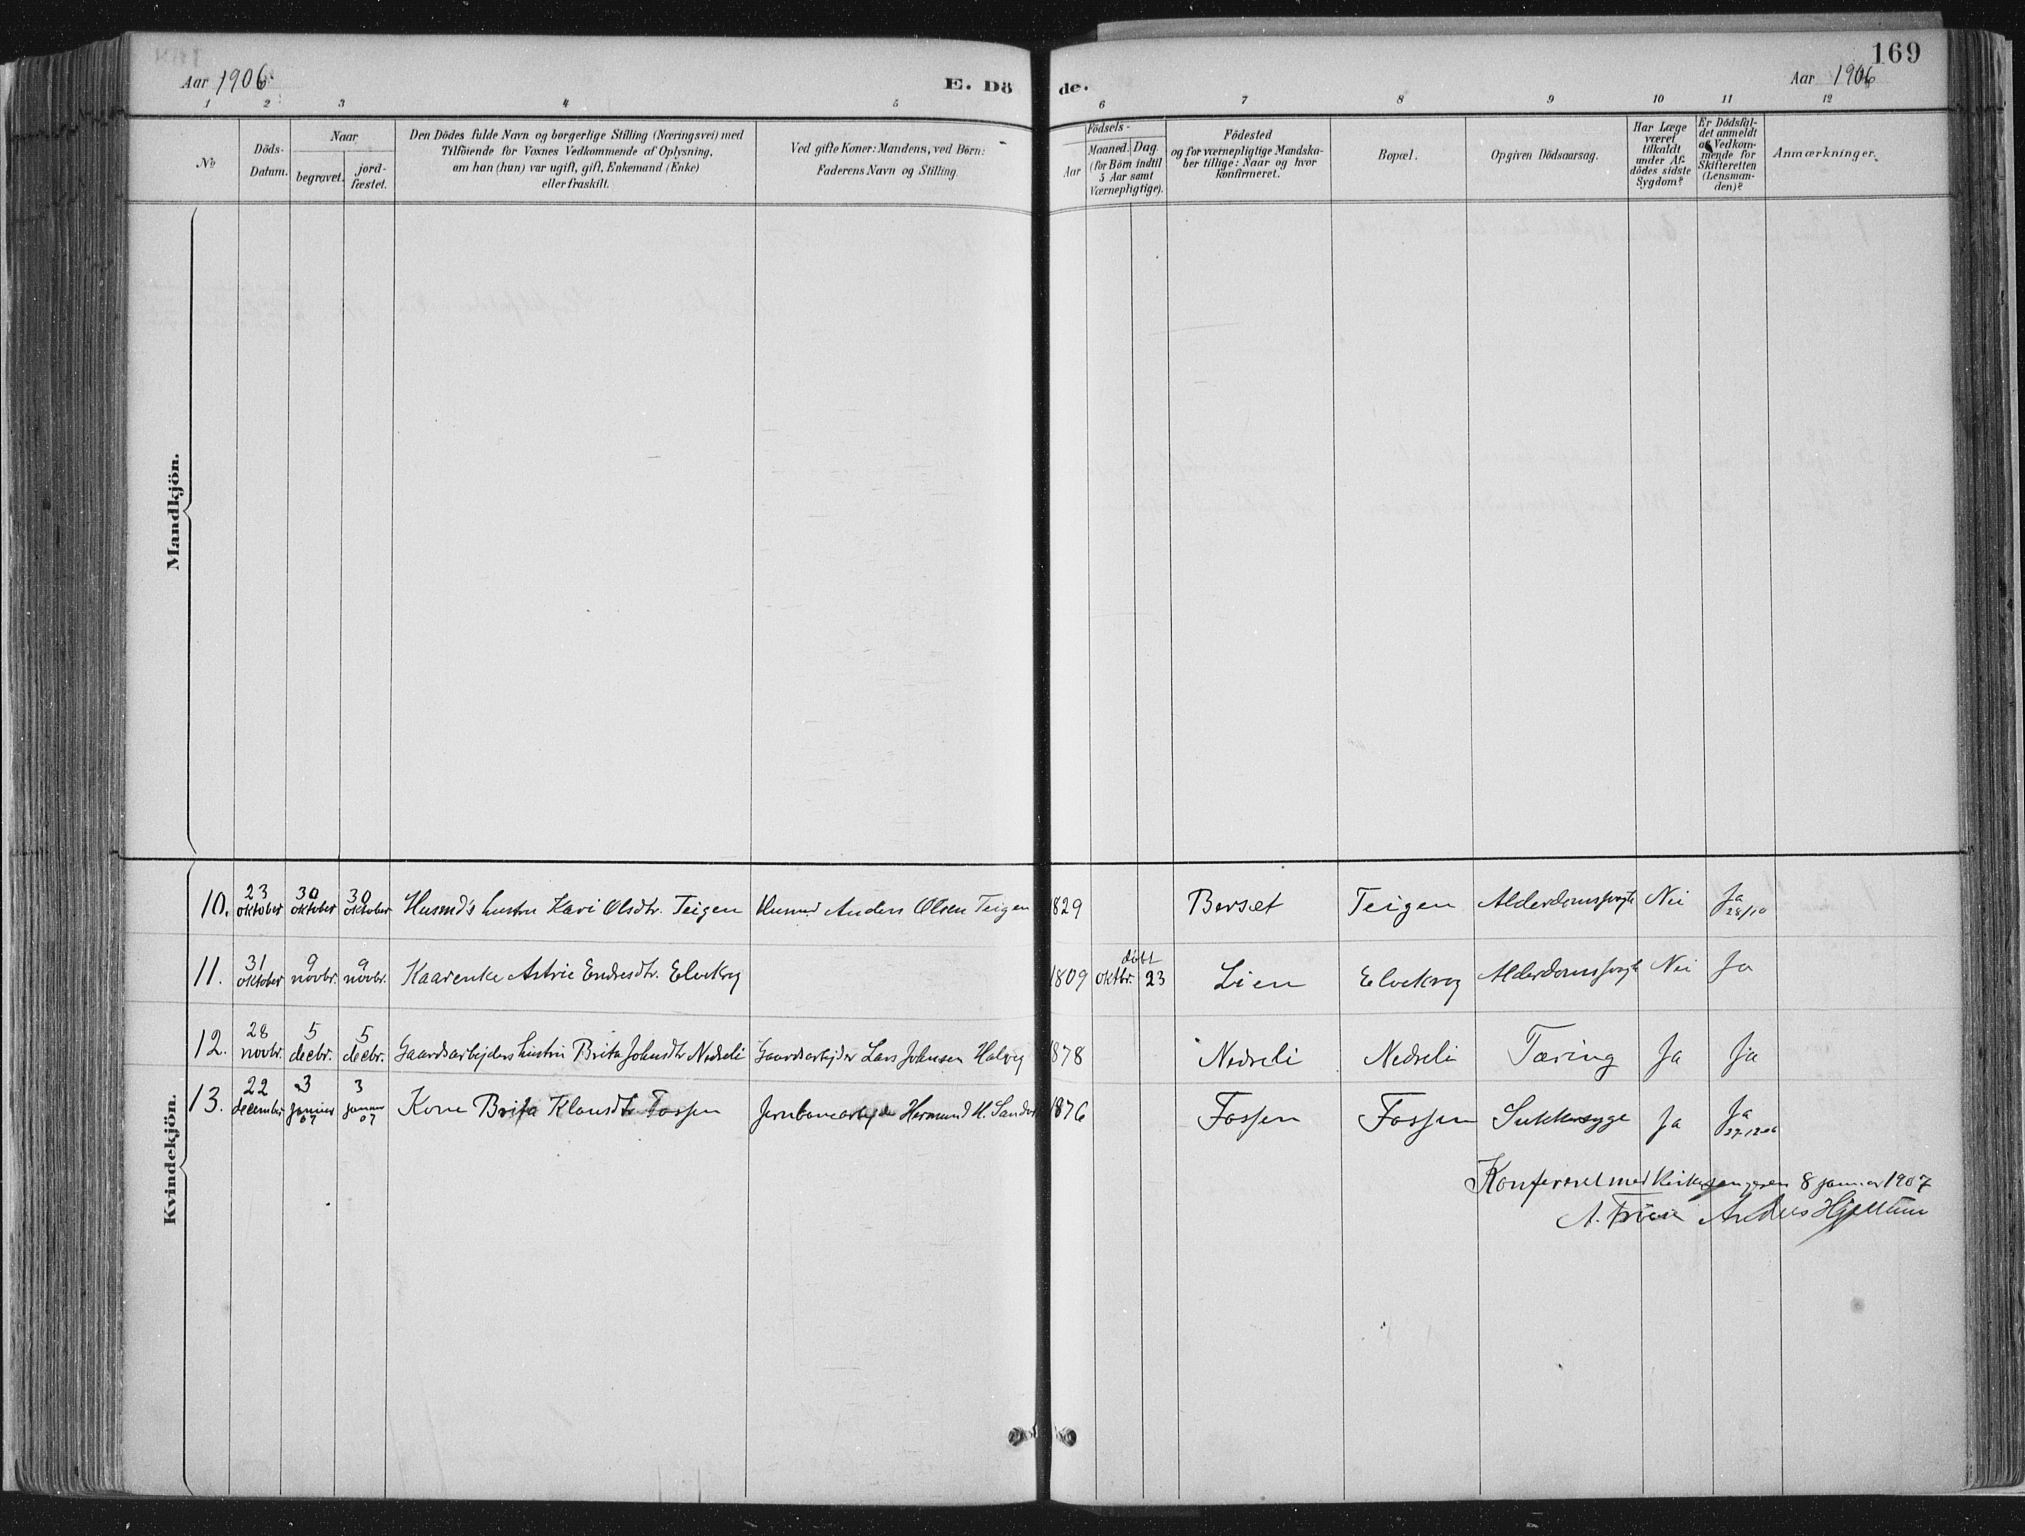 169
Aar 1906
E. Dö
de.
Aar 1906
1 2 3 4 5 6 7 8 9 10 11 12
No
Döds-
Datum.
Naar
begravet.
jord-
fæstet.
Den Dödes fulde Navn og borgerlige Stilling (Næringsvei) med
Tilföiende for Voxnes Vedkommende af Oplysning,
om han (hun) var ugift, gift, Enkemand (Enke)
eller fraskilt.
Ved gifte Koner: Mandens, ved Börn:
Faderens Navn og Stilling
Födsels-
Aar
Maaned.
Dag
(for Börn indtil
5 Aar samt
Værnepligtige).
Födested
og for værnepligtige Mandska-
ber tillige: Naar og hvor
konfirmeret.
Bopæl.
Opgiven Dödsaarsag.
Har Læge
været
tilkaldt
under Af-
dödes sidste
Sygdom?
Er Dödsfal-
det anmeldt
af Vedkom-
mende for
Skifteretten
(Lensman-
den)?
Anmærkninger.
Mandkjön.
Kvindekjön.
10. 23 oktober 30 oktober 30 oktober Husmds hustru Kari Olsdtr. Teigen Husmd Anders Olsen Teigen 1829 Berset Teigen Alderdomssvagh Nei Ja 28/10
11. 31 oktober 9 novbr. 9 novbr. Kaarenke Astrie Endresdtr. Elvekrog 1809 oktbr. døbt 23 Lien Elvekrog Alderdomssvagh Nei Ja
12. 28 novbr. 5 decbr. 5 decbr. Gaardsarbejders hustru Brita Johnsdtr Nedreli Gaardsarbejder Lars Johnsen Halveg 1878 Nedreli Nedreli Tæring Ja Ja
13. 22 december 3 januar 07 3 januar 07 Kone Brita Klausdtr Fossen Jernbanearbejder Hermund H. Sander 1876 Fossen Fossen Sukkersyge Ja Ja 27-12-06
Konfereret med Kirkesangeren 8 januar 1907